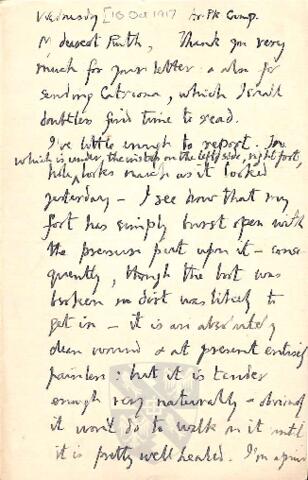 Wednesday [10 Oct 1917 Av. Pk Camp.
My dearest Ruth, Thank you very
much for your letter & also for
sending Catriona, which I shall
doubtless find time to read.
I've little enough to report.
which is under the instep on the left side, right foot,
looks much as it looked
yesterday – I see now that my
foot has simply burst open with
the pressure put upon it – conse-
quently, though the boot was
broken no dirt was likely to
get in – it is an absolutely
clean wound & at present entirely
painless; but it is tender
enough very naturally & obviously
it won't do to walk on it until
it is pretty well healed. I'm